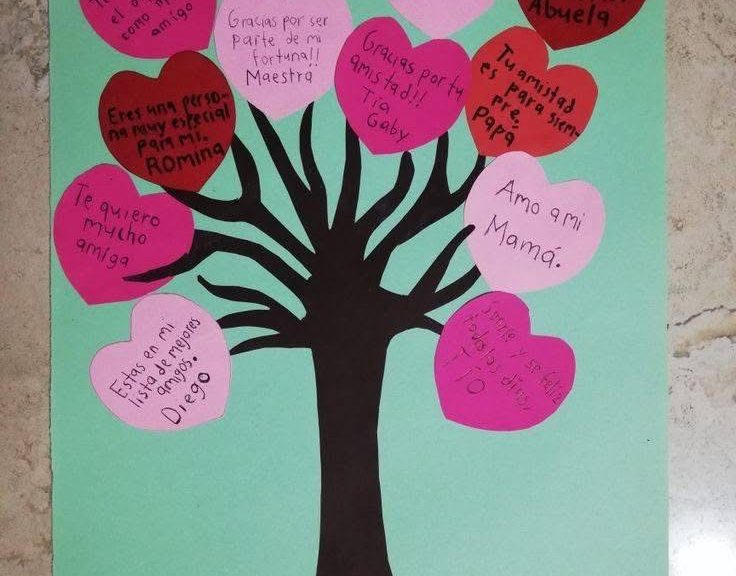 como mi
amigo
Gracias por ser
parte de mi
fortuna!!
Maestra
Abuela
Eres una perso-
na muy especial
para mi.
ROMINA
Gracias por tu
amistad!!
Tía
Gaby
Tu amistad
es para siem-
pre.
PAPÁ
Te quiero
mucho
amiga
Amo a mi
Mamá.
Estas en mi
lista de mejores
amigos.
Diego
Sonrie y se feliz
todos los dias.
TÍO